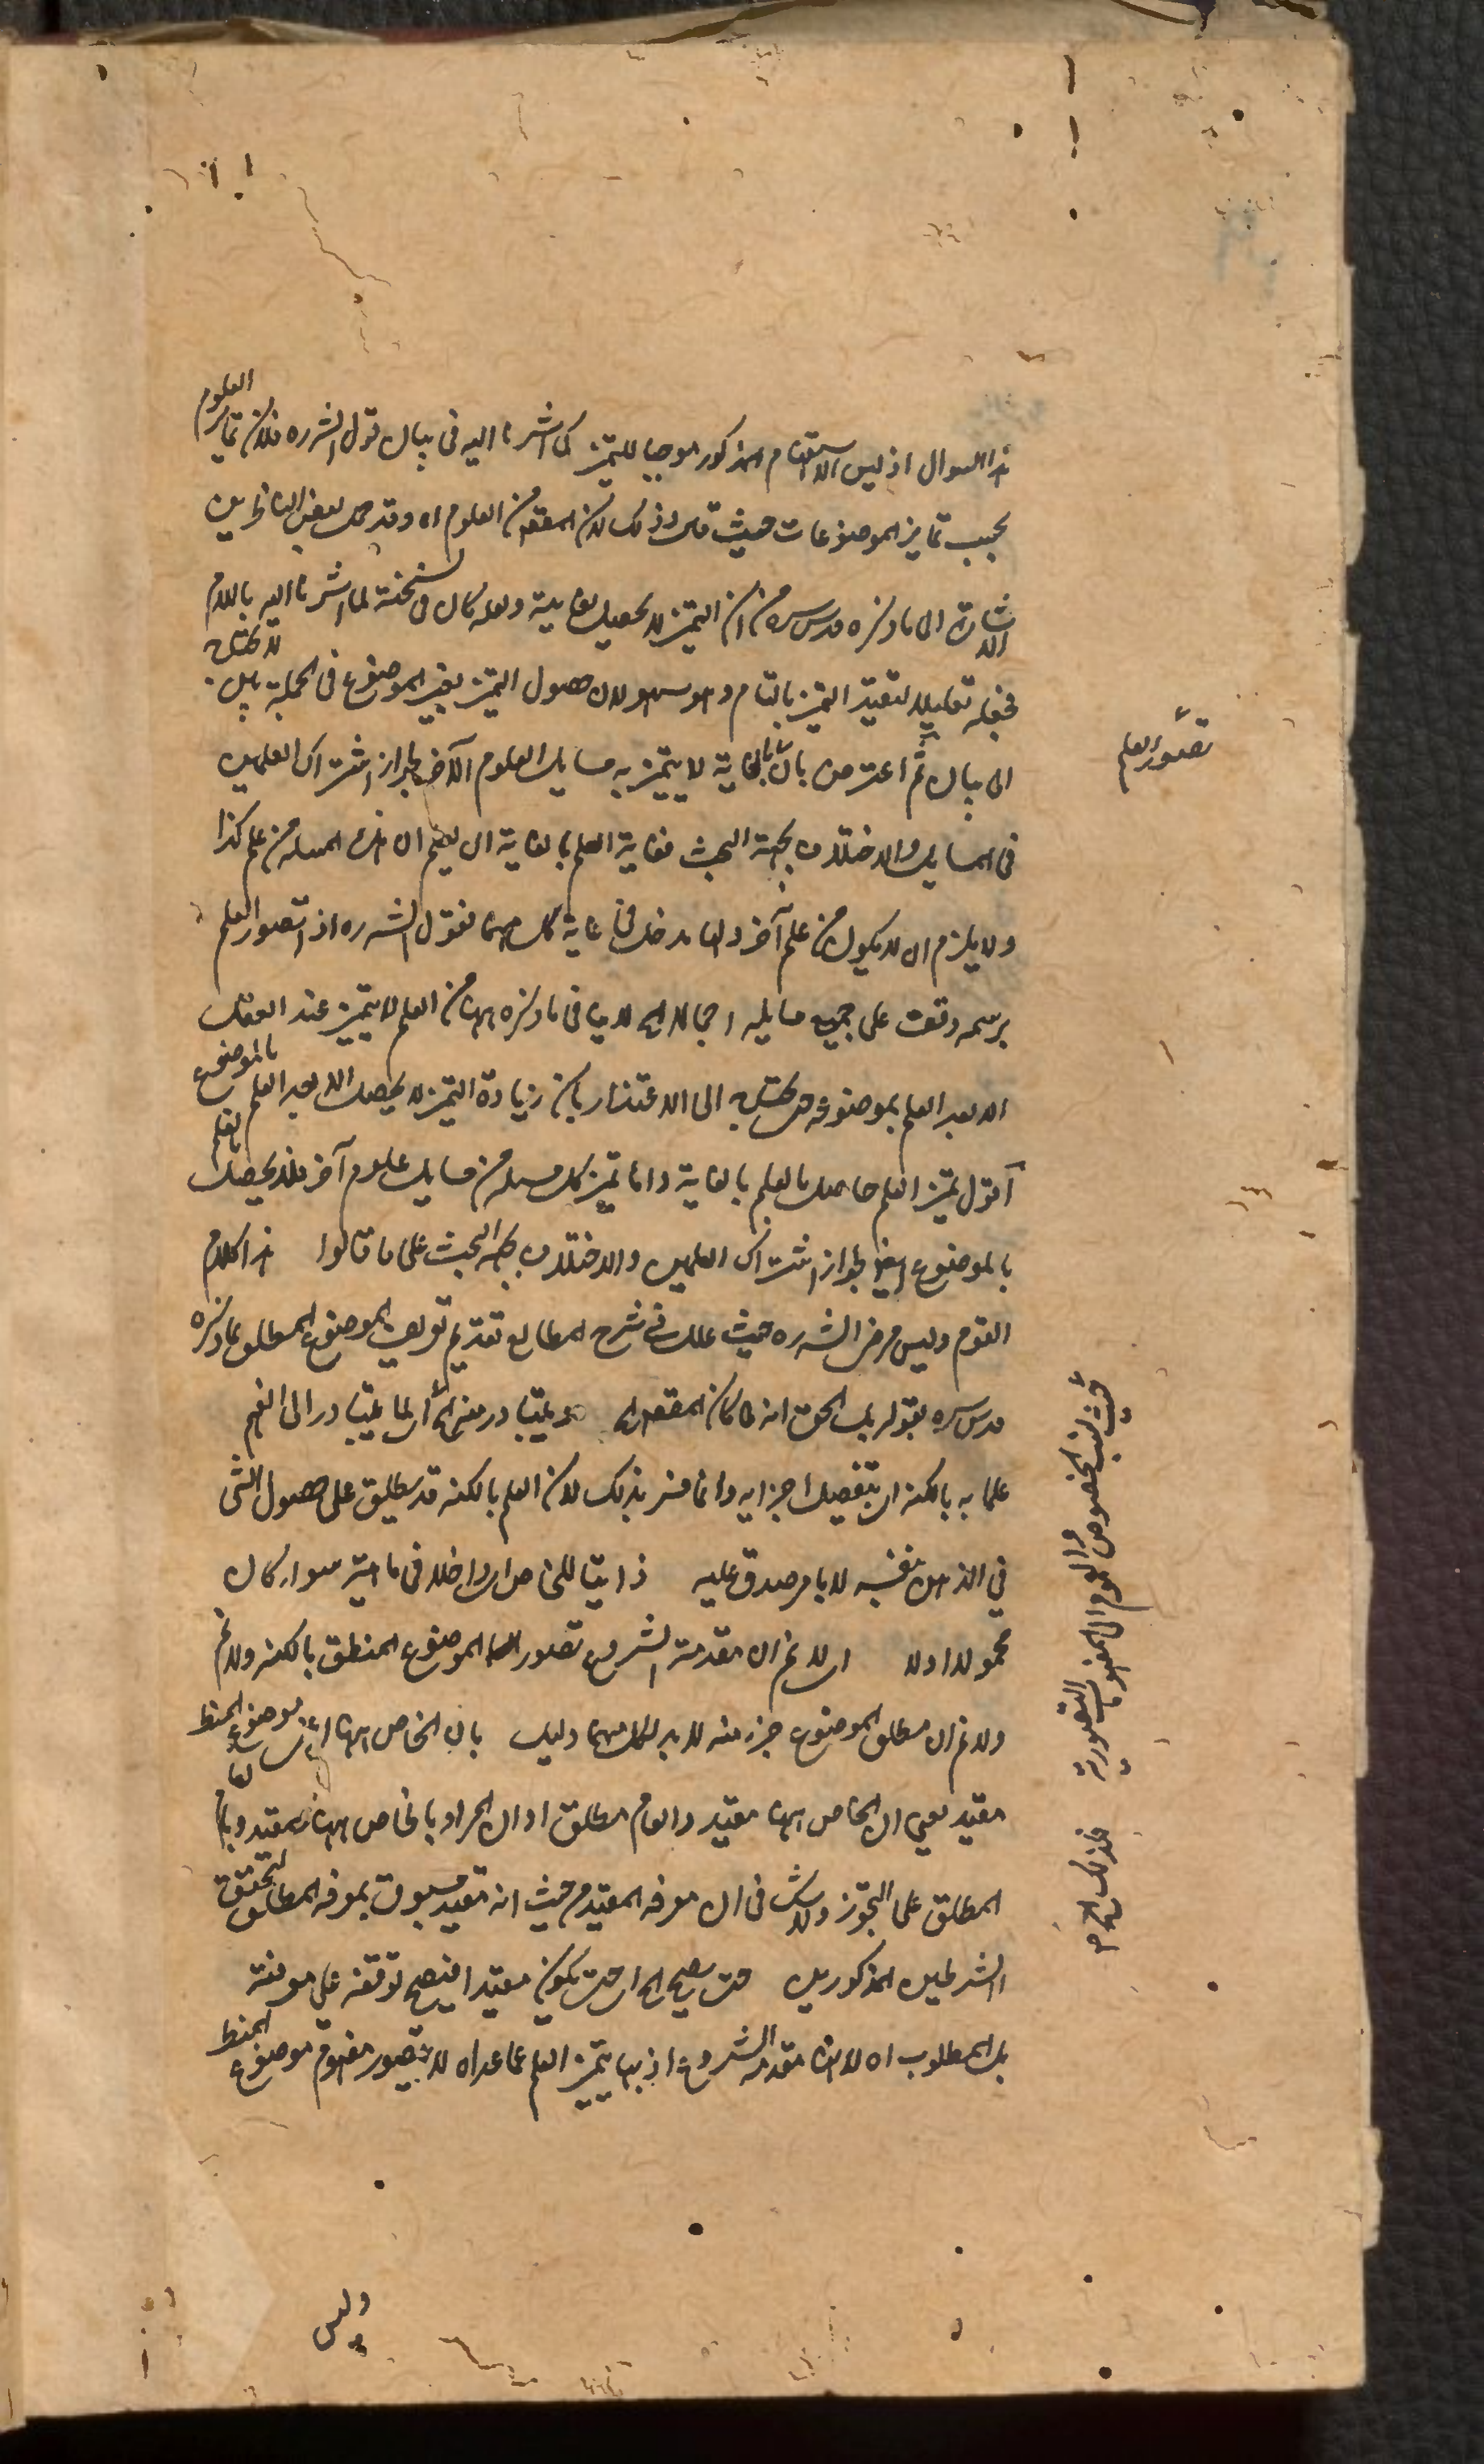 هذا السوال اذ ليس الاستفهام المذكور موجبا للتميز كما اشرنا اليه فى بيان قول الش ره فلان تمايز العلوم
بحسب تمايز الموضوعات حيث قال وذلك لان المقصد من العلوم اه وقد حمل بعض الناظرين
الاشارة الى ما ذكره قدس سره من ان التميز لا يحصل بغايته ولعله كان فى نسخته لما اشرنا اليه باللام
فجعله تعليلا لتقييد التميز بالتام وهو سهو لان حصول التميز بغير الموضوع فى الجملة بين لا يحتاج
الى بيان ثم اعترض بان بالغاية لا يتميز به مسايل العلوم الآخر لجواز اشتراك العلمين
فى المسايل والاختلاف بجهة البحث فغاية العلم بالغاية ان يعلم ان هذه المسله من علم كذا
ولا يلزم ان لا يكون من علم آخر ولها مدخل فى غاية كل منهما فقول الش ره اذ تصور العلم
برسمه وقف على جميع مسايله اجمالا اه لا ينافى ما ذكره ههنا من العلم لا يتميز عند العقل
الا بعد العلم بموضوعه حتى يحتاج الى الاعتذار بان زيادة التميز لا يحصل الا بعد العلم بالموضوع
آقول تميز العلم حاصل بالعلم بالغاية واما تميز كل مسله من مسايل علوم آخر فلا يحصل بالعلم
بالموضوع ايضا لجواز اشتراك العلمين والاختلاف بجهة البحث على ما قالوا هذا كلام
القوم وليس مرضى الش ره حيث علل فى شرح المطالع تقديم تعريف الموضوع المطلق بما ذكره
قدس سره بقوله بل الحق انه لما كان المقصد اه ويتبادر منه اه اى لما يتبادر الى الفهم
علما به بالكنه اى بتفصيل اجزايه وانما فسر بذلك لان العلم بالكنه قد يطلق على حصول الشى
في الذهن بنفسه لا بامر صدق عليه ذاتيا للخاص اى داخلا فى ماهيته سواء كان
محمولا او لا اى لا نم ان مقدمة الشروع تصور الموضوع المنطق بالكنه ولا نم
ولا نم ان مطلق الموضوع جزء منه لا بد لكل منهما دليل بان الخاص ههنا اعنى موضوع المنط
مقيد يعني ان الخاص ههنا مقيد والعام مطلق او ان المراد بالخاص ههنا المقيد وبالعام
المطلق على التجوز ولا شك فى ان معرفه المقيد من حيث انه مقيد مسبوق بمعرفه المطلق لتحقق
الشرطين المذكورين حتى يصح اه اى حتى يكون مقيدا فيصح توقفه على معرفته
بل المطلوب اه لا انها مقدمة الشروع اذ بها يتميز العلم عما عداه لا بتصور مفهوم موضوع المنط
وليس
تصور العلم